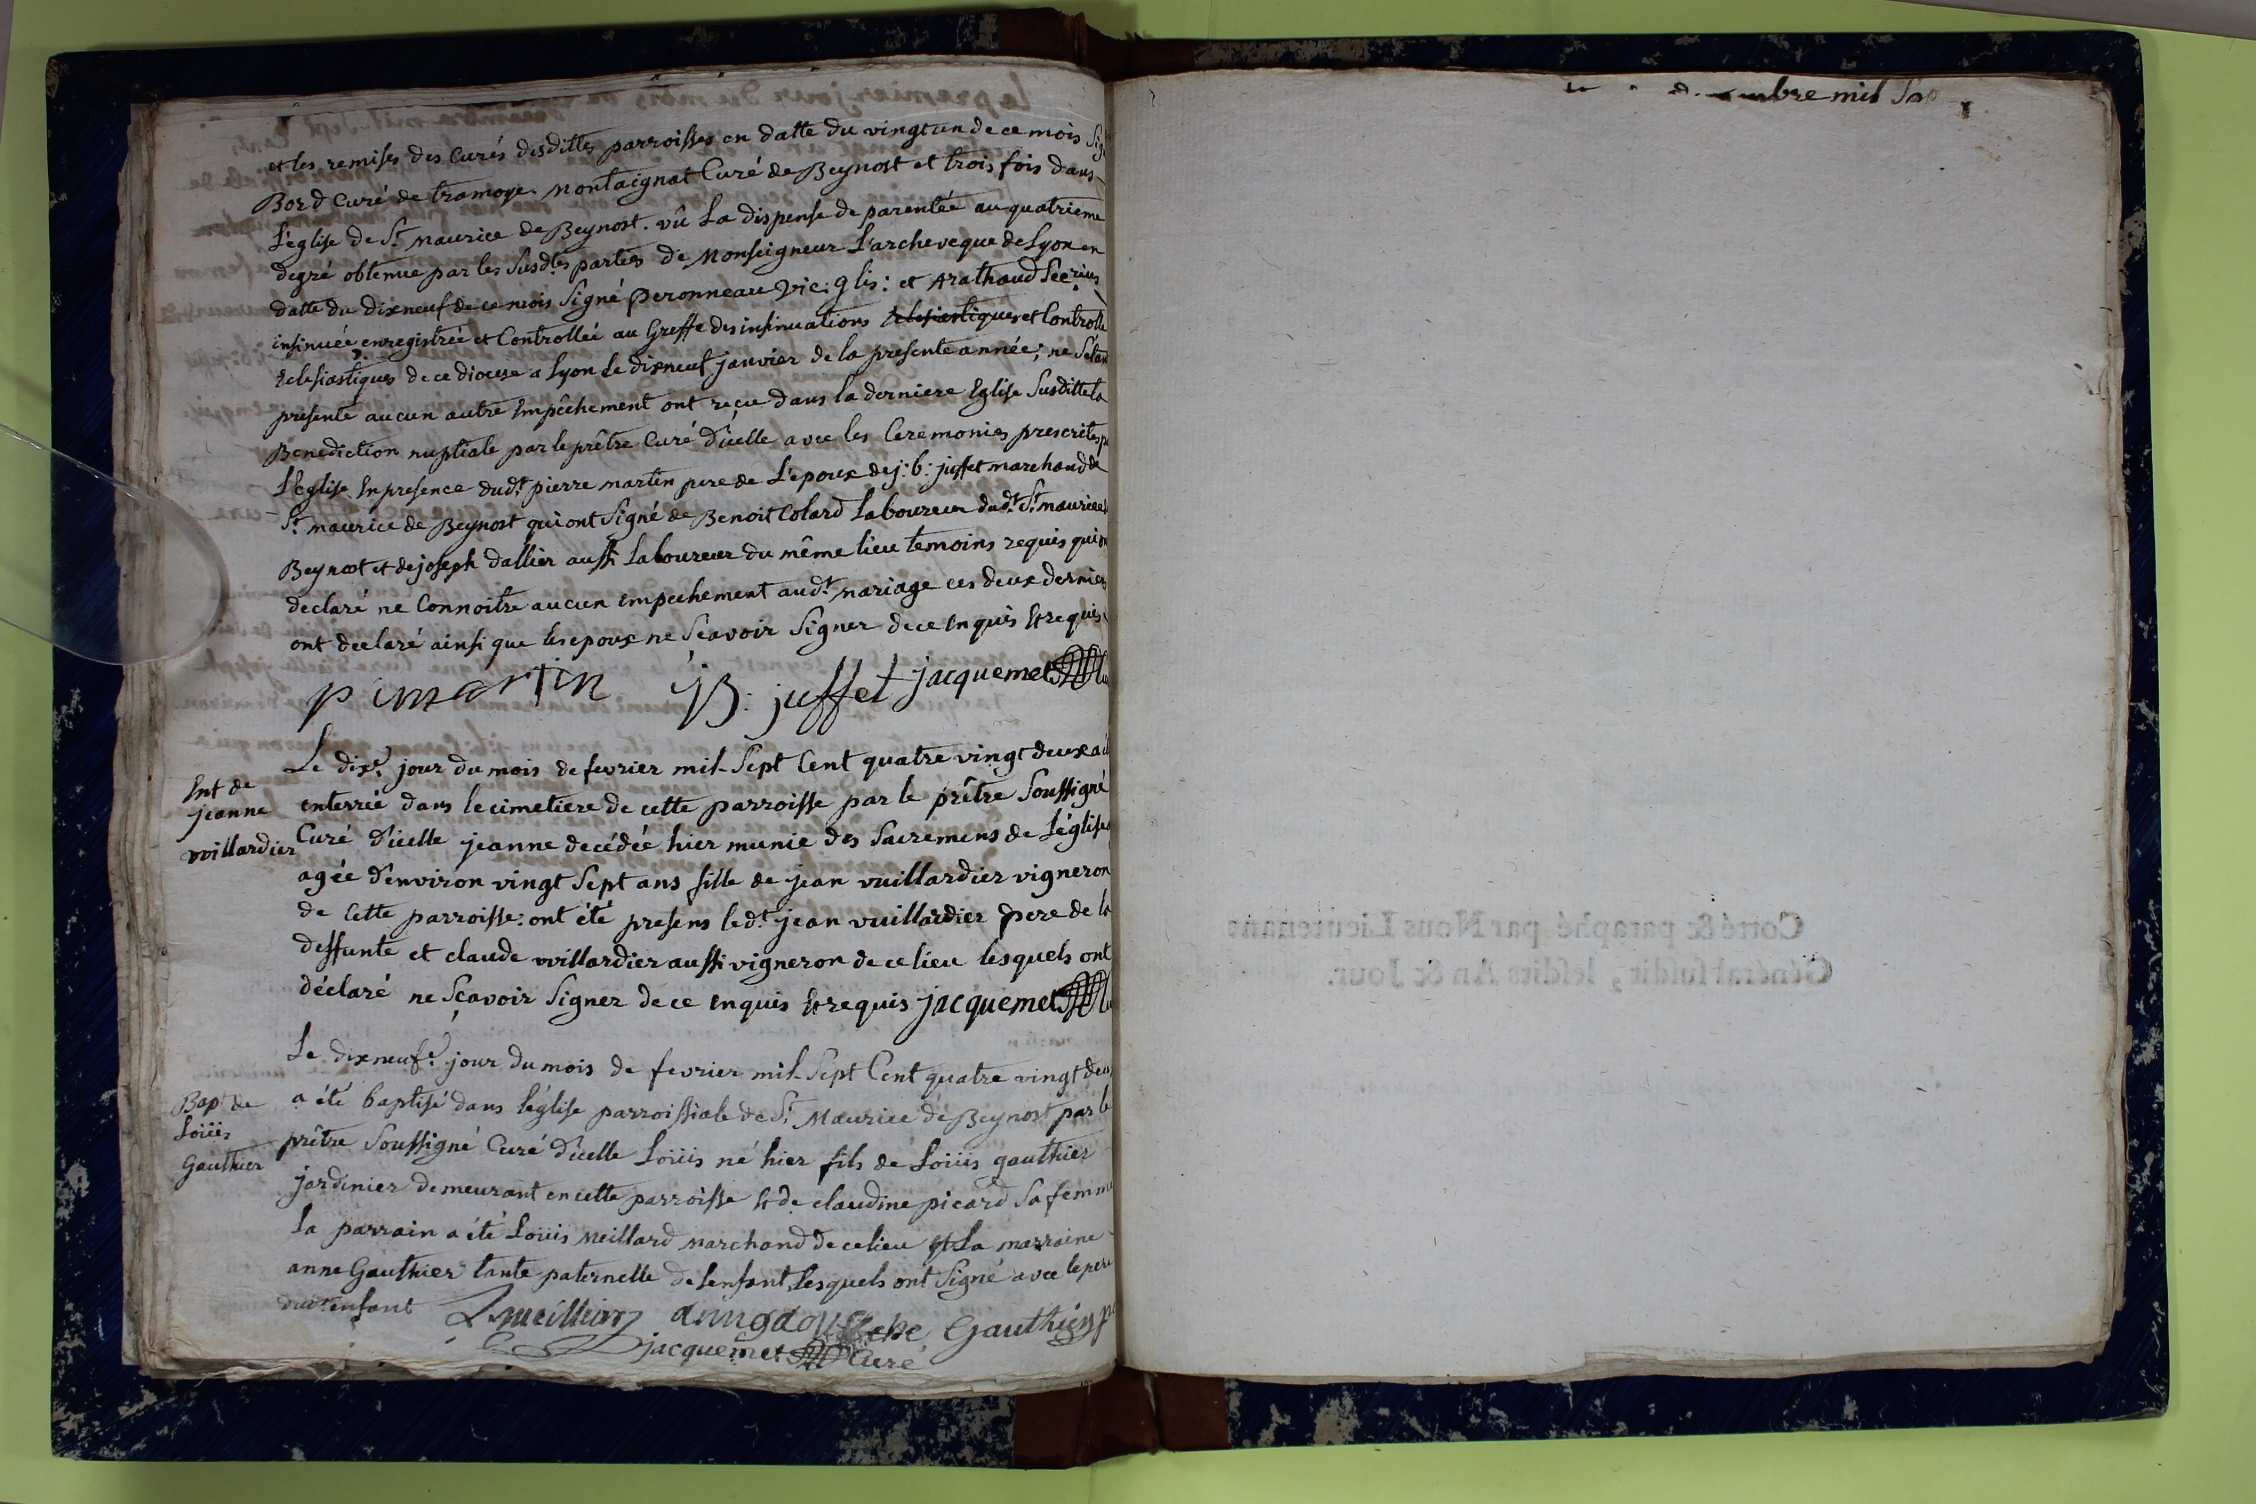 et les remises des Curés desdittes parroisses en datte du vingt un de ce mois
Bord Curé de tramoye. Montaignat Curé de Beynost et trois fois dans
L'eglise de St. Maurice de Beynost. vû La dispense de parentée au quatrieme
degré obtenue par les Susd.tes parties de Monseigneur L'archeveque de Lyon en
datte du dixneuf de ce mois Signé peronneau vic: glis: et
insinuée enregistrée et Controllée au Greffe des insinuations Eclesiastiques et Controlle
Eclesiastiques de ce diocese a Lyon le dixneuf janvier de la presente année; ne S'étan
presenté aucun autre Empêchement ont reçu dans la derniere Eglise Susditte la
Benediction nuptiale par le prêtre Curé d'icelle avec les Ceremonies prescrites p
L'Eglise En presence dud.t pierre martin pere de L'epoux de j: b: juffet marchand de
St. maurice de Beynost qui ont Signé de Benoit Colard Laboureur dud.t St. maurice
Beynost et de joseph dallier aussi Laboureur du même lieu temoins requis qui on
declaré ne Connoitre aucun empechement aud.t mariage ces deux derniers
ont declaré ainsi que les epoux ne Sçavoir Signer de ce Enquis Et requis
p martin JB: juffet jacquemet
Le dix.e jour du mois de fevrier mil Sept Cent quatre vingt deux a
Ent de
jeanne
vuillardier
enterrée dans le cimetiere de cette parroisse par le prêtre Soussigné
Curé d'icelle jeanne decédée hier munie des Sacremens de L'église
agée d'environ vingt Sept ans fille de jean vuillardier vigneron
de Cette parroisse: ont été presens led.t jean vuillardier pere de la
deffunte et claude vuillardier aussi vigneron de ce lieu lesquels ont
déclaré ne Sçavoir Signer de ce Enquis Et requis jacquemet
Le dixneuf.e jour du mois de fevrier mil Sept Cent quatre vingt deu
Bap.t de
Loüis
Gauthier
a été baptisé dans l'église parroissiale de St. Maurice de Beynost par le
prêtre Soussigné Curé d'icelle Loüis né hier fils de Loüis gauthier
jardinier demeurant en cette parroisse Et de claudine picard Sa femme
La parrain a été Loüis Meillard Marchand de ce lieu Et La marraine
anne Gauthier tante paternelle de lenfant Lesquels ont Signé avec le pere
dud.t enfant Gauthier
jacquemet Curé
mbre mil
Cotté & paraphé par Nous Lieutenant
Général susdit, lesdits An & Jour.